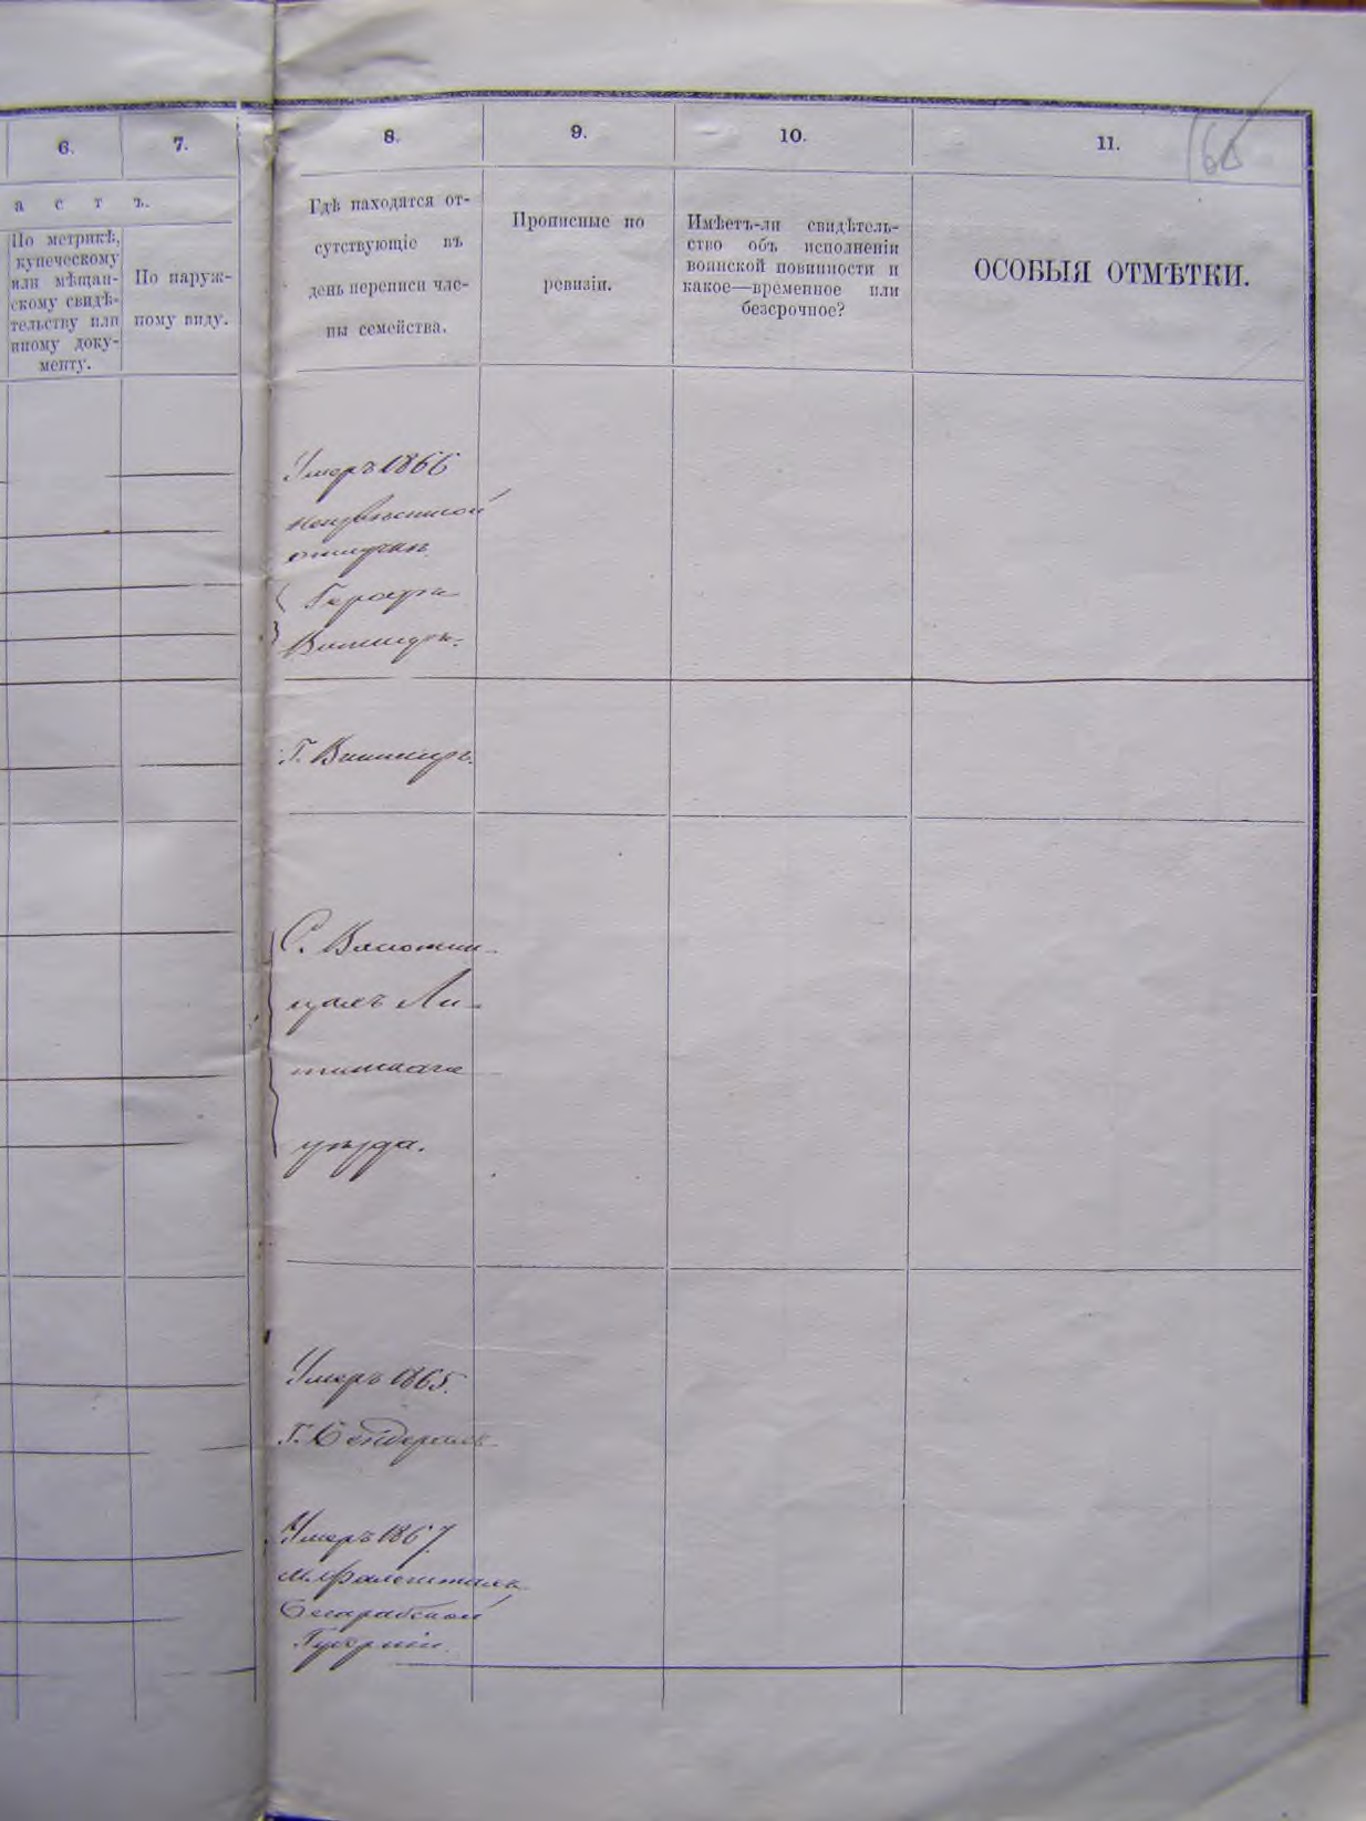 6.
7.
8.
9.
10.
11.
а с т ъ.
По метрикѣ,
купеческому
или мѣщан-
скому свидѣ-
тельству или
иному доку-
менту.
По наруж-
ному виду.
Гдѣ находятся от-
сутствующіе въ
день переписи чле-
ны семейства.
Прописные по
ревизіи.
Имѣетъ-ли свидѣтель-
ство объ исполненіи
воинской повинности и
какое—временное или
безсрочное?
ОСОБЫЯ ОТМѢТКИ.
Умеръ 1866
неизвѣстной
отлучкѣ
Города
Винницѣ.
Г. Винницѣ.
С.
Ли-
тинскаго
уѣзда.
Умеръ 1865.
Г. Бендерахъ
Умеръ 1867.
М. Фалештахъ
Бесарабской
Губерніи.